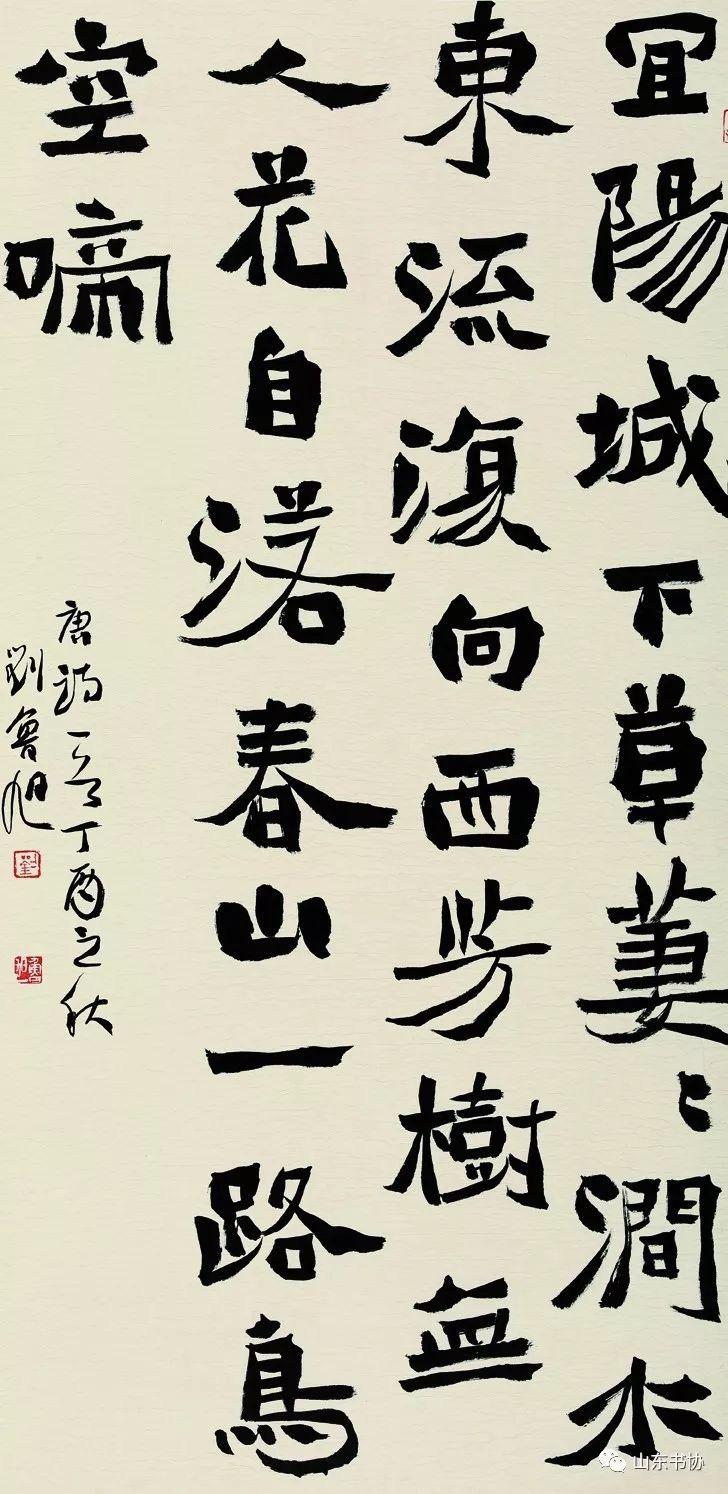 宜陽城下草萋〻澗水
東流復向西芳樹無
人花自落春山一路鳥
空啼
唐詩一首丁酉之秋
劉魯旭
山东书协